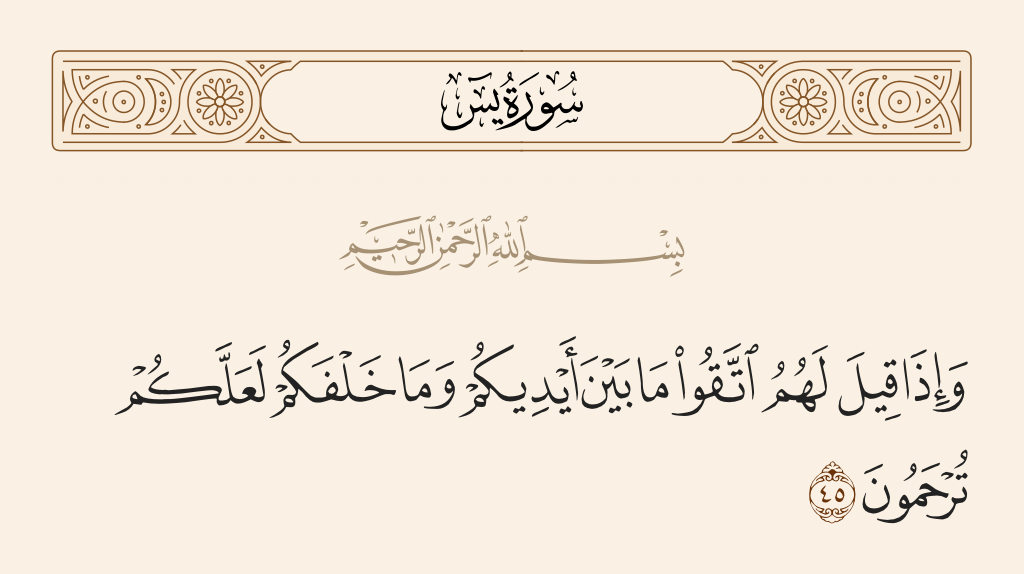 سُورَةُ يسٓ
بِسْمِ ٱللَّهِ ٱلرَّحْمَٰنِ ٱلرَّحِيمِ
وَإِذَا قِيلَ لَهُمُ ٱتَّقُوا۟ مَا بَيْنَ أَيْدِيكُمْ وَمَا خَلْفَكُمْ لَعَلَّكُمْ
تُرْحَمُونَ ٤٥